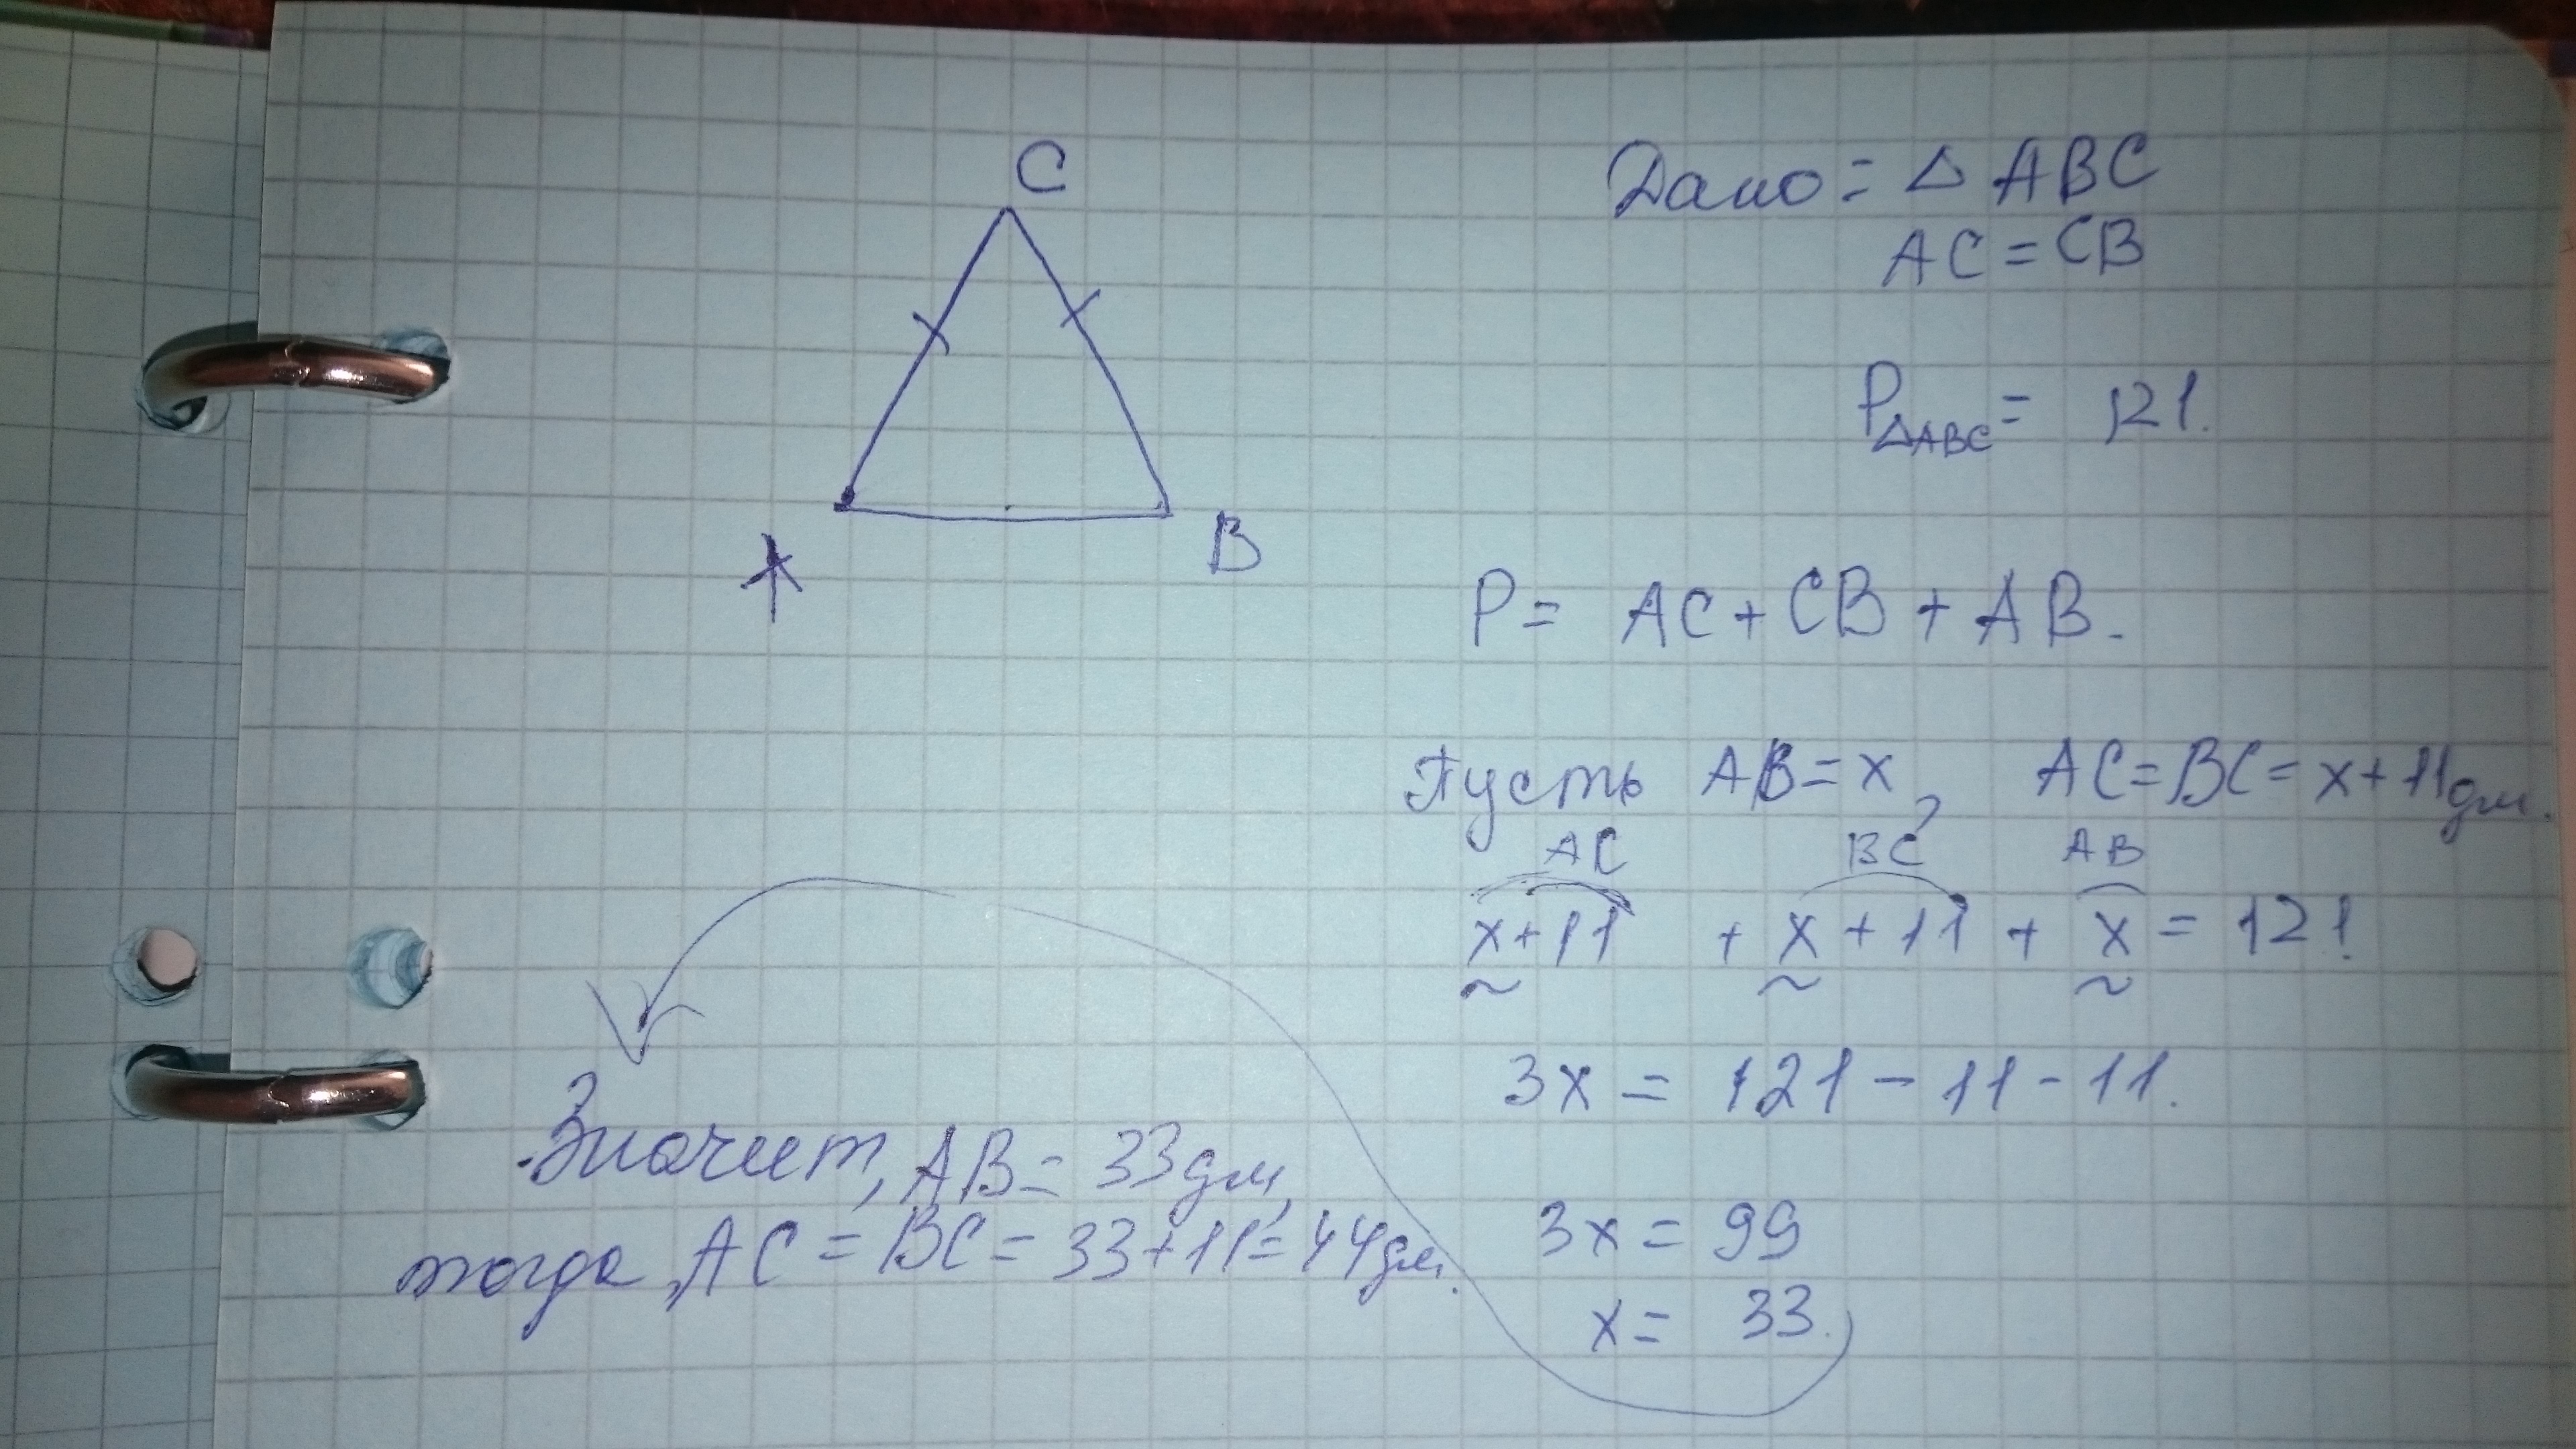 C
A
B
Дано: △ ABC
AC = CB
P△ABC = 121.
P = AC + CB + AB.
Пусть AB = x, AC = BC = x + 11 дм.
AC BC AB
x + 11 + x + 11 + x = 121
3x = 121 - 11 - 11.
3x = 99
x = 33.
Значит, AB = 33 дм,
тогда, AC = BC = 33 + 11 = 44 дм.